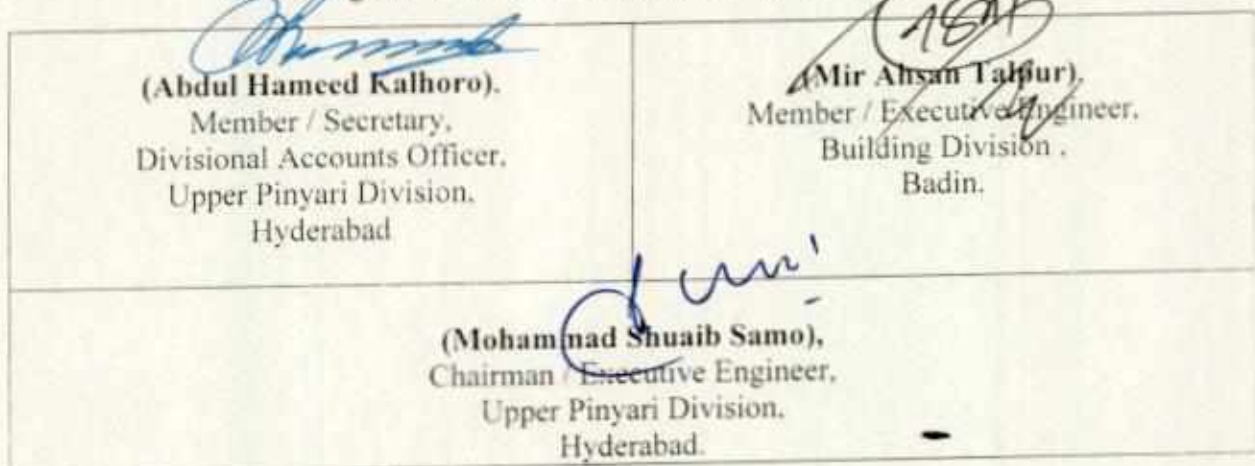 (Abdul Hameed Kalhoro).
Member / Secretary,
Divisional Accounts Officer,
Upper Pinyari Division.
Hyderabad
(Mir Ahsan Talpur),
Member / Executive Engineer.
Building Division .
Badin.
(Mohammad Shuaib Samo),
Chairman / Executive Engineer,
Upper Pinyari Division.
Hyderabad.